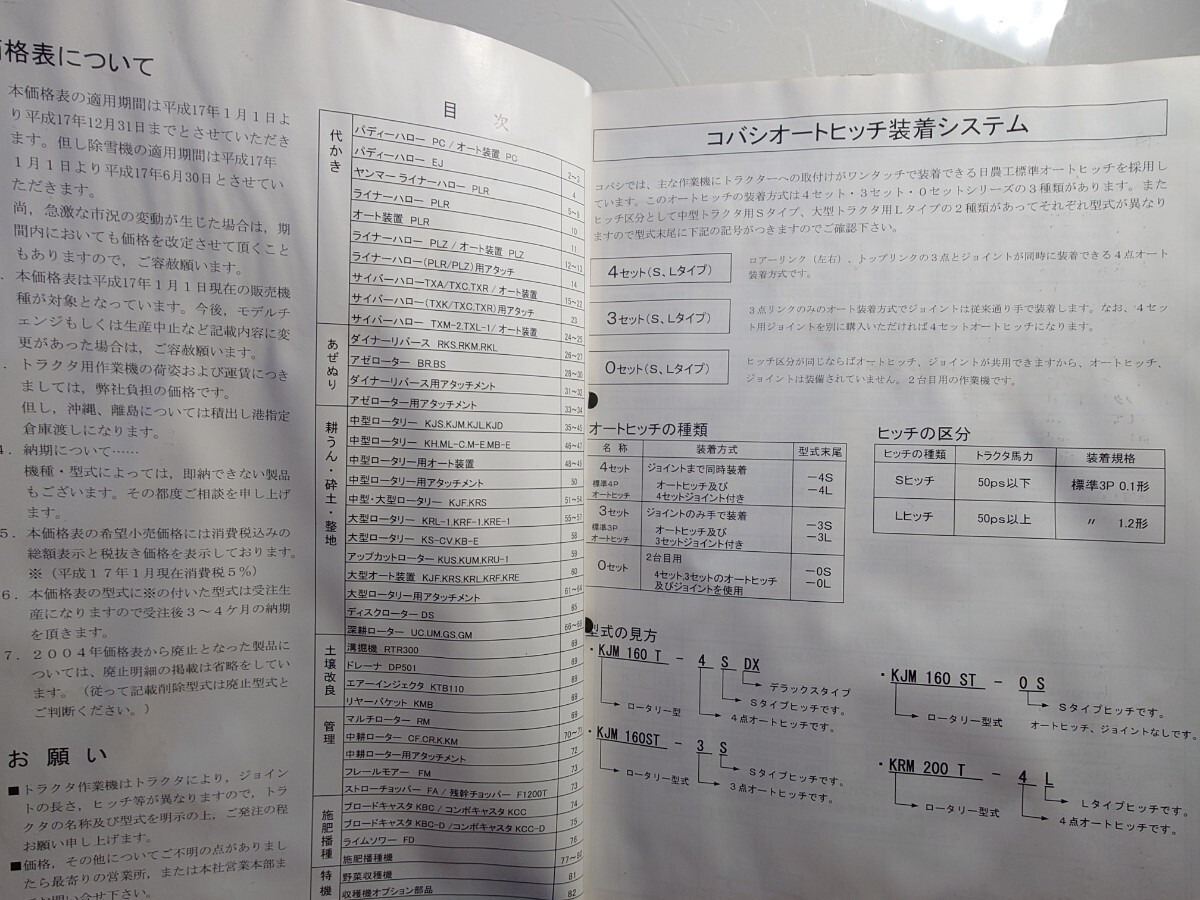 格表について
本価格表の適用期間は平成17年1月1日よ
り平成17年12月31日までとさせていただき
ます。但し除雪機の適用期間は平成17年
1月1日より平成17年6月30日とさせてい
ただきます。
尚，急激な市況の変動が生じた場合は，期
間内においても価格を改定させて頂くこと
もありますので，ご容赦願います。
本価格表は平成17年1月1日現在の販売機
種が対象となっています。今後，モデルチ
ェンジもしくは生産中止など記載内容に変
更があった場合は，ご容赦願います。
トラクタ用作業機の荷姿および運賃につき
ましては，弊社負担の価格です。
但し，沖縄、離島については積出し港指定
倉庫渡しになります。
納期について……
機種・型式によっては，即納できない製品
もございます。その都度ご相談を申し上げ
ます。
5．本価格表の希望小売価格には消費税込みの
総額表示と税抜き価格を表示しております。
※（平成17年1月現在消費税5％）
6．本価格表の型式に※の付いた型式は受注生
産になりますので受注後3～4ケ月の納期
を頂きます。
7．2004年価格表から廃止となった製品に
ついては，廃止明細の掲載は省略をしてい
ます。（従って記載削除型式は廃止型式と
ご判断ください。）
お願い
■トラクタ作業機はトラクタにより，ジョイン
トの長さ，ヒッチ等が異なりますので，トラ
クタの名称及び型式を明示の上，ご発注の程
お願い申し上げます。
■価格，その他についてご不明の点がありまし
たら最寄りの営業所，または本社営業本部ま
でお問い合せ下さい。
目次
代かき
パディーハロー PC / オート装置 PC 2～3
パディーハロー EJ 4
ヤンマー ライナーハロー PLR 5～9
ライナーハロー PLR 10
オート装置 PLR 11
ライナーハロー PLZ / オート装置 PLZ 12～13
ライナーハロー(PLR/PLZ)用アタッチ 14
サイバーハローTXA/TXC,TXR / オート装置 15～22
サイバーハロー(TXK/TXC,TXR)用アタッチ 23
サイバーハロー TXM-2.TXL-1/ オート装置 24～25
あぜぬり
ダイナーリバース RKS.RKM.RKL 26～27
アゼローター BR.BS 28～30
ダイナーリバース用アタッチメント 31～32
アゼローター用アタッチメント 33～34
耕うん・砕土・整地
中型ロータリー KJS.KJM.KJL.KJD 35～45
中型ロータリー KH.ML-C.M-E.MB-E 46～47
中型ロータリー用オート装置 48～49
中型ロータリー用アタッチメント 50
中型・大型ロータリー KJF.KRS 51～54
大型ロータリー KRL-1.KRF-1.KRE-1 55～57
大型ロータリー KS-CV.KB-E 58
アップカットロータ― KUS.KUM.KRU-1 59
大型オート装置 KJF.KRS.KRL.KRF.KRE 60
大型ロータリー用アタッチメント 61～64
ディスクローター DS 65
深耕ローター UC.UM.GS.GM
土壌改良
溝掘機 RTR300 69
ドレーナ DP501 69
エアーインジェクタ KTB110 69
リヤーバケット KMB 69
管理
マルチローター RM 69
中耕ローター CF.CR.K.KM 70～71
中耕ローター用アタッチメント 72
フレールモアー FM 73
ストローチョッパー FA / 残幹チョッパー F1200T 73
施肥播種
ブロードキャスタ KBC / コンポキャスタ KCC 74
ブロードキャスタ KBC-D /コンポキャスタ KCC-D 75
ライムソワー FD 76
施肥播種機
特機
野菜収穫機 81
収穫機オプション部品 82
コバシオートヒッチ装着システム
コバシでは、主な作業機にトラクターへの取付けがワンタッチで装着できる日農工標準オートヒッチを採用し
ています。このオートヒッチの装着方式は4セット・3セット・0セットシリーズの3種類があります。また
ヒッチ区分として中型トラクタ用Sタイプ、大型トラクタ用Lタイプの2種類があってそれぞれ型式が異なり
ますので型式末尾に下記の記号がつきますのでご確認下さい。
4セット(S、Lタイプ)
ロアーリンク（左右）、トップリンクの3点とジョイントが同時に装着できる4点オート
装着方式です。
3セット(S、Lタイプ)
3点リンクのみのオート装着方式でジョイントは従来通り手で装着します。なお、4セッ
ト用ジョイントを別に購入いただければ4セットオートヒッチになります。
0セット(S、Lタイプ)
ヒッチ区分が同じならばオートヒッチ、ジョイントが共用できますから、オートヒッチ、
ジョイントは装備されていません。2台目用の作業機です。
オートヒッチの種類
名称 装着方式 型式末尾
4セット 標準4P オートヒッチ
ジョイントまで同時装着
オートヒッチ及び
4セットジョイント付き
－4S
－4L
3セット 標準3P オートヒッチ
ジョイントのみ手で装着
オートヒッチ及び
3セットジョイント付き
－3S
－3L
0セット
2台目用
4セット,3セットのオートヒッチ
及びジョイントを使用
－0S
－0L
ヒッチの区分
ヒッチの種類 トラクタ馬力 装着規格
Sヒッチ 50ps以下 標準3P 0.1形
Lヒッチ 50ps以上 〃 1.2形
型式の見方
・KJM 160 T － 4 S DX
デラックスタイプ
Sタイプヒッチです。
4点オートヒッチです。
ロータリー型
・KJM 160ST － 3 S
Sタイプヒッチです。
3点オートヒッチです。
ロータリー型式
・KJM 160 ST － 0 S
Sタイプヒッチです。
オートヒッチ、ジョイントなしです。
ロータリー型式
・KRM 200 T － 4 L
Lタイプヒッチです。
4点オートヒッチです。
ロータリー型式